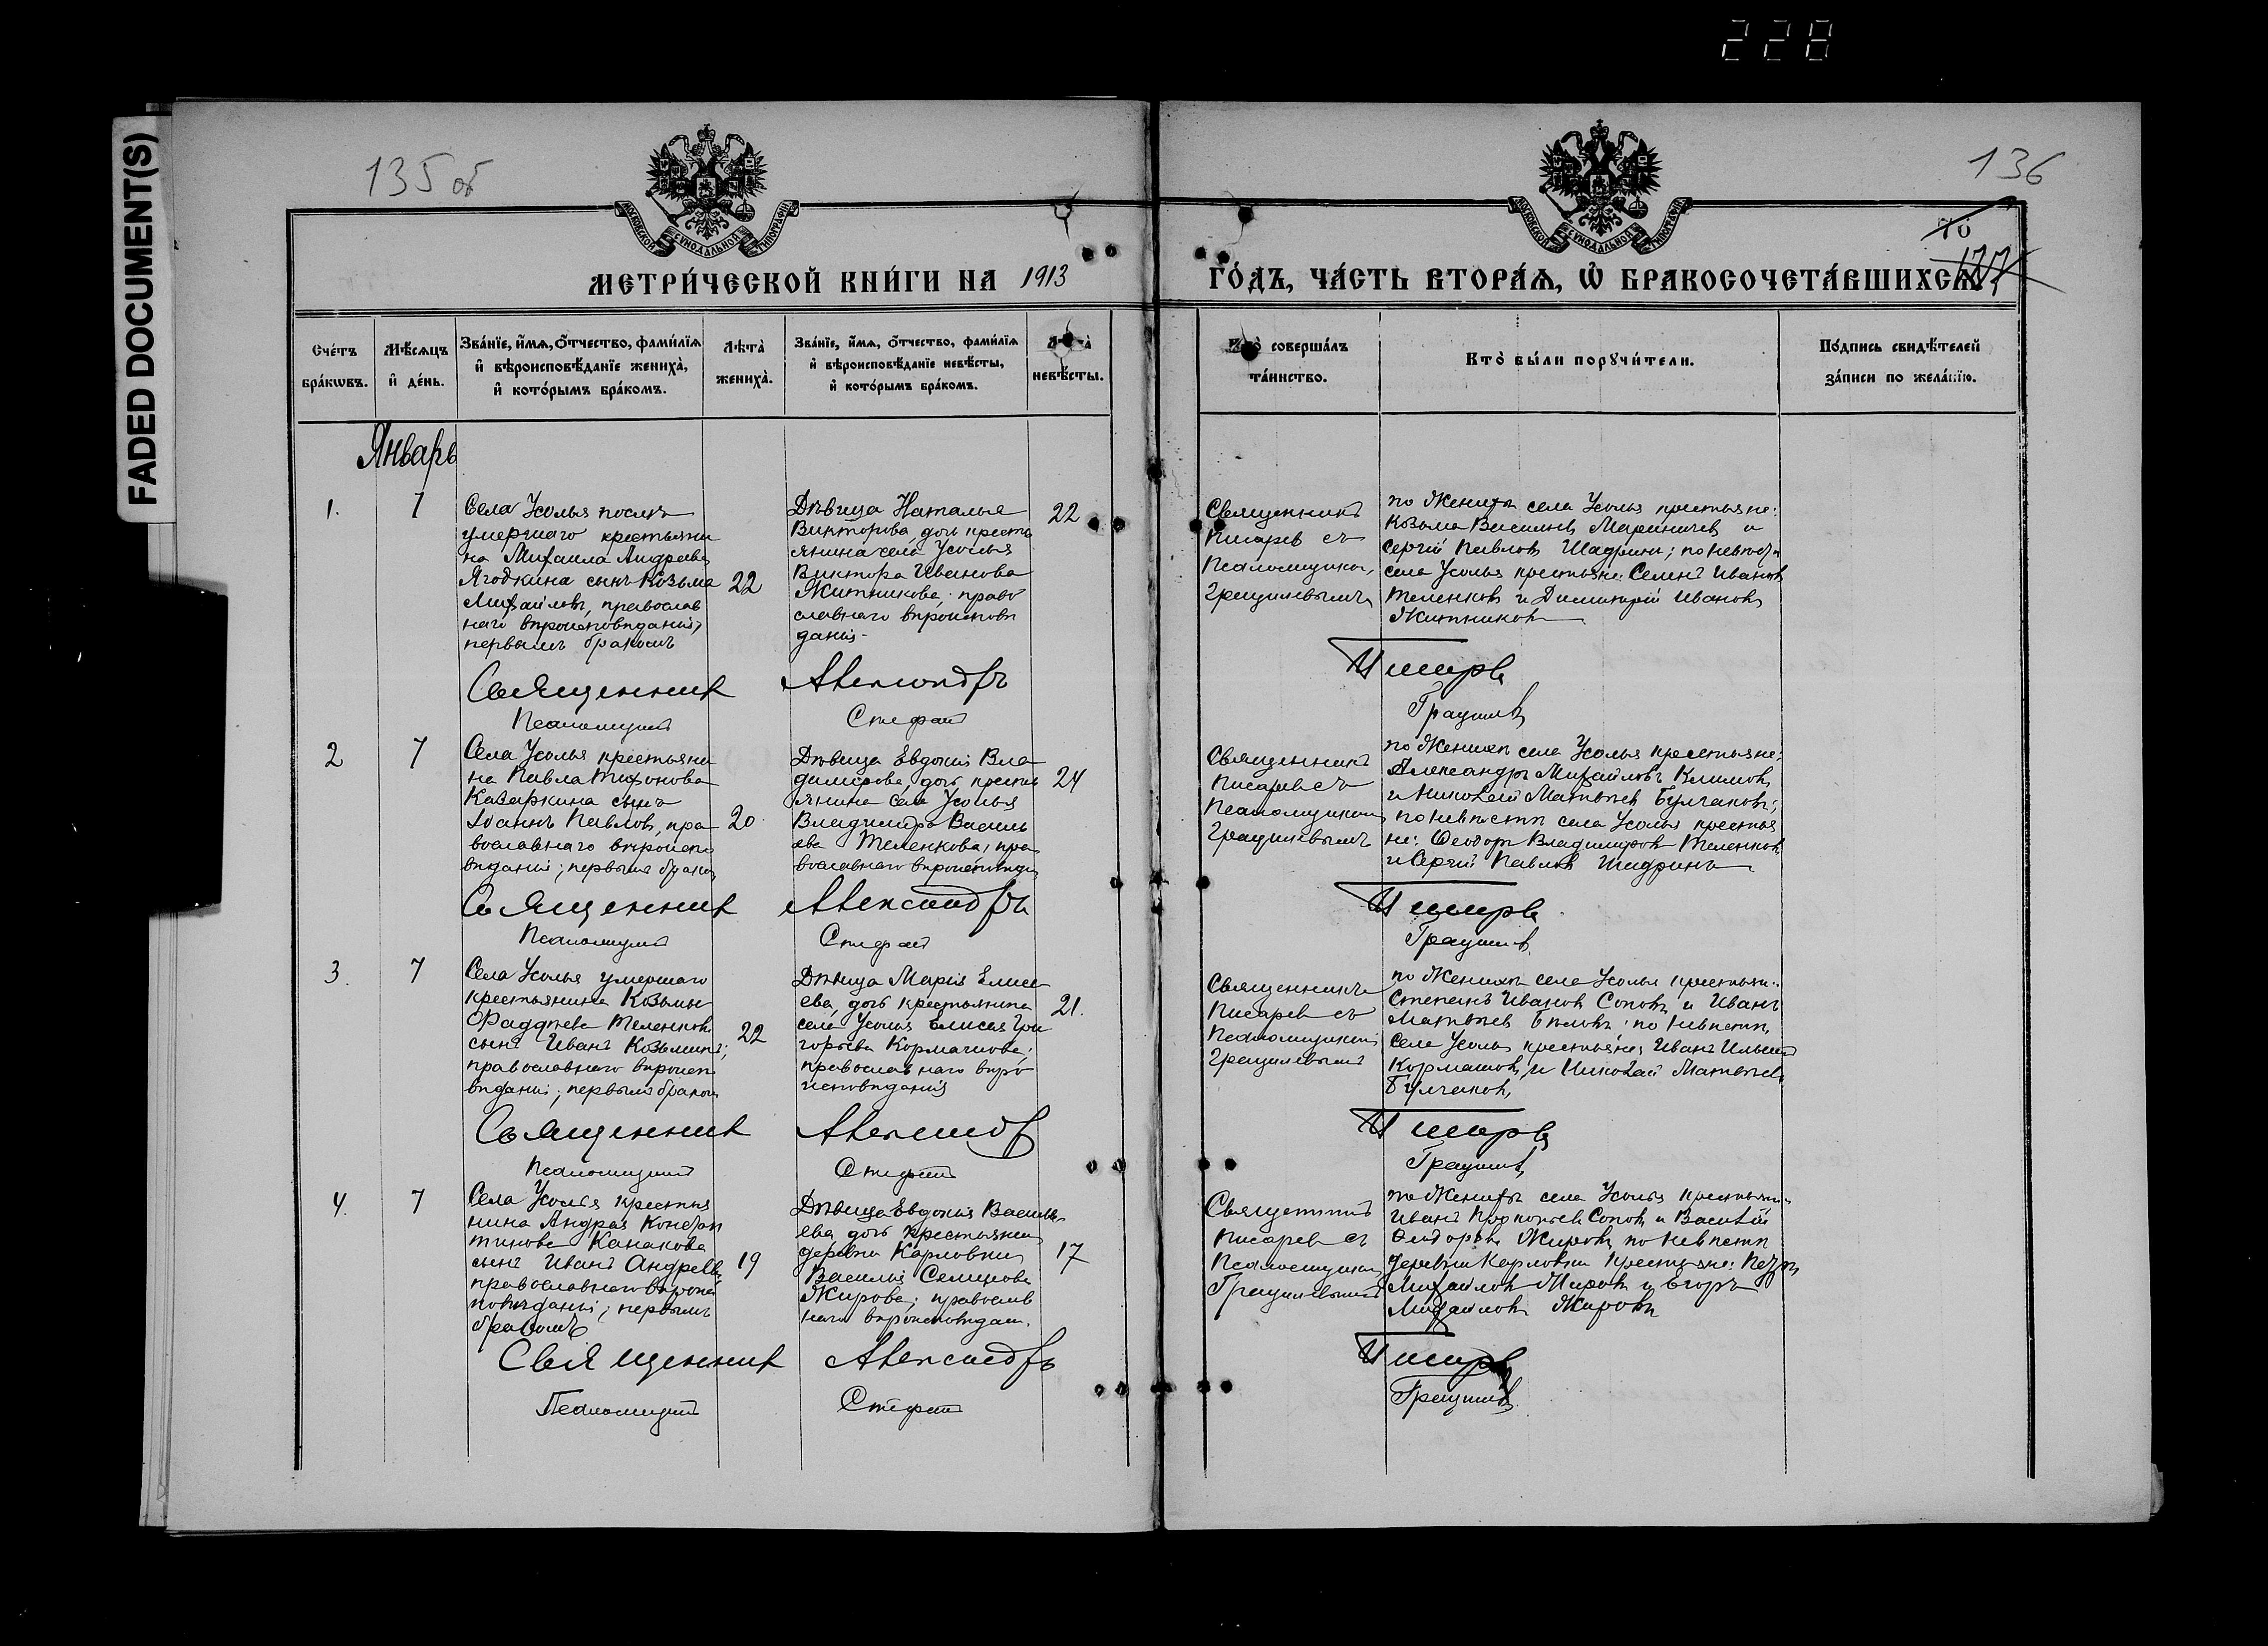 228
FADED DOCUMENT(S)
135 об
136
МОСКОВСКОЙ СУНОДАЛЬНОЙ ТИПОГРАФІИ
МОСКОВСКОЙ СУНОДАЛЬНОЙ ТИПОГРАФІИ
МЕТРИ́ЧЕСКОЙ КНИ́ГИ НА 1913
ГО́ДЪ, ЧА́СТЬ ВТОРА́Ѧ, Ѡ҆ БРАКОСОЧЕТА́ВШИХСѦ
Сче́тъ бра́кѡвъ.
Мѣ́сѧцъ и҆ де́нь.
Зва́нїе, и҆́мѧ, ѻ҆́тчество, фами́лїѧ и҆ вѣроисповѣ́данїе жениха̀, и҆ кото́рымъ бра́комъ.
Лѣта̀ жениха̀.
Зва́нїе, и҆́мѧ, ѻ҆́тчество, фами́лїѧ и҆ вѣроисповѣ́данїе невѣ́сты, и҆ кото́рымъ бра́комъ.
невѣ́сты.
соверша́лъ та́инство.
Кто̀ бы́ли порꙋчи́тели.
По́дпись свидѣ́телей за́писи по жела́нїю.
Январь
1.
7
Села Усолья послѣ
умершаго крестьяни
на Михаила Андреева
Ягодкина сынъ Козьма
Михайловъ, православ
наго вѣроисповѣданія,
первымъ бракомъ
22
Дѣвица Наталья
Викторова, дочь кресть
янина села Усолья
Виктора Иванова
Житникова, право
славнаго вѣроисповѣ
данія
22
Священникъ
Писаревъ съ
Псаломщикомъ
Грацилевымъ
по женихѣ села Усолья крестьяне:
Козьма Васильевъ Мариничевъ и
Сергій Павловъ Шадринъ; по невѣстѣ
села Усолья крестьяне: Семенъ Ивановъ
Теленковъ и Димитрій Ивановъ
Житниковъ
Священникъ Александръ Писаревъ
Псаломщикъ Стефанъ
2
7
Села Усолья крестьяни
на Павла Тихонова
Казаркина сынъ
Іоаннъ Павловъ, пра
вославнаго вѣроиспо
вѣданія; первымъ бракомъ
20
Дѣвица Евдокія Вла
димірова, дочь кресть
янина села Усолья
Владиміра Василь
ева Теленкова, пра
вославнаго вѣроисповѣд
24
Священникъ
Писаревъ съ
Псаломщикомъ
Грацилевымъ
по женихѣ села Усолья крестьяне:
Александръ Михайловъ Климовъ
и Николай Матвѣевъ Булчаковъ;
по невѣстѣ села Усолья крестья
не: Феодоръ Владиміровъ Теленковъ
и Сергій Павловъ Шадринъ
Священникъ Александръ Писаревъ
Псаломщикъ Стефанъ
3.
7
Села Усолья умершаго
крестьянина Козьмы
Фаддѣева Теленкова
сынъ Иванъ Козьминъ;
православнаго вѣроиспо
вѣданія; первымъ бракомъ
22
Дѣвица Марія Елисе
ева, дочь крестьянина
села Усолья Елисея Гри
горьева Кормашова;
православнаго вѣро
исповѣданія
21.
Священникъ
Писаревъ съ
Псаломщикомъ
Грацилевымъ
по женихѣ села Усолья крестьяне:
Степанъ Ивановъ Соповъ и Иванъ
Матвѣевъ Бѣловъ; по невѣстѣ
села Усолья крестьяне: Иванъ Ильинъ
Кормашовъ и Николай Матвѣевъ
Булчаковъ
Священникъ Александръ Писаревъ
Псаломщикъ Стефанъ
4.
7
Села Усолья крестья
нина Андрея Кондра
тикова Канакова
сынъ Иванъ Андреевъ
православнаго вѣроис
повѣданія; первымъ
бракомъ
19
Дѣвица Евдокія Василь
ева дочь крестьянина
деревни Карловки
Василія Семенова
Жирова; православ
наго вѣроисповѣдан.
17
Священникъ
Писаревъ съ
Псаломщикомъ
Грацилевымъ
по женихѣ села Усолья крестьяне
Иванъ Прокопьевъ Соповъ и Василій
Феодоровъ Жировъ по невѣстѣ
деревни Карловки крестьяне: Петръ
Михайловъ Жировъ и Егоръ
Михайловъ Жировъ
Священникъ Александръ Писаревъ
Псаломщикъ Стефанъ